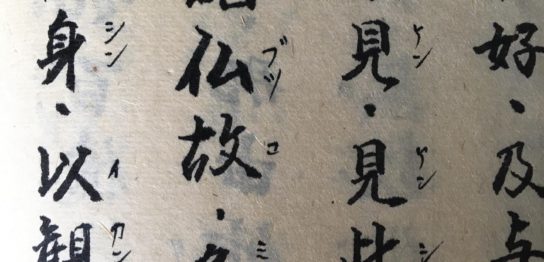 好・及与
見・見此
ケン ケン シ
仏故・
ブツ コ ミ
身・以観
シン イ カン